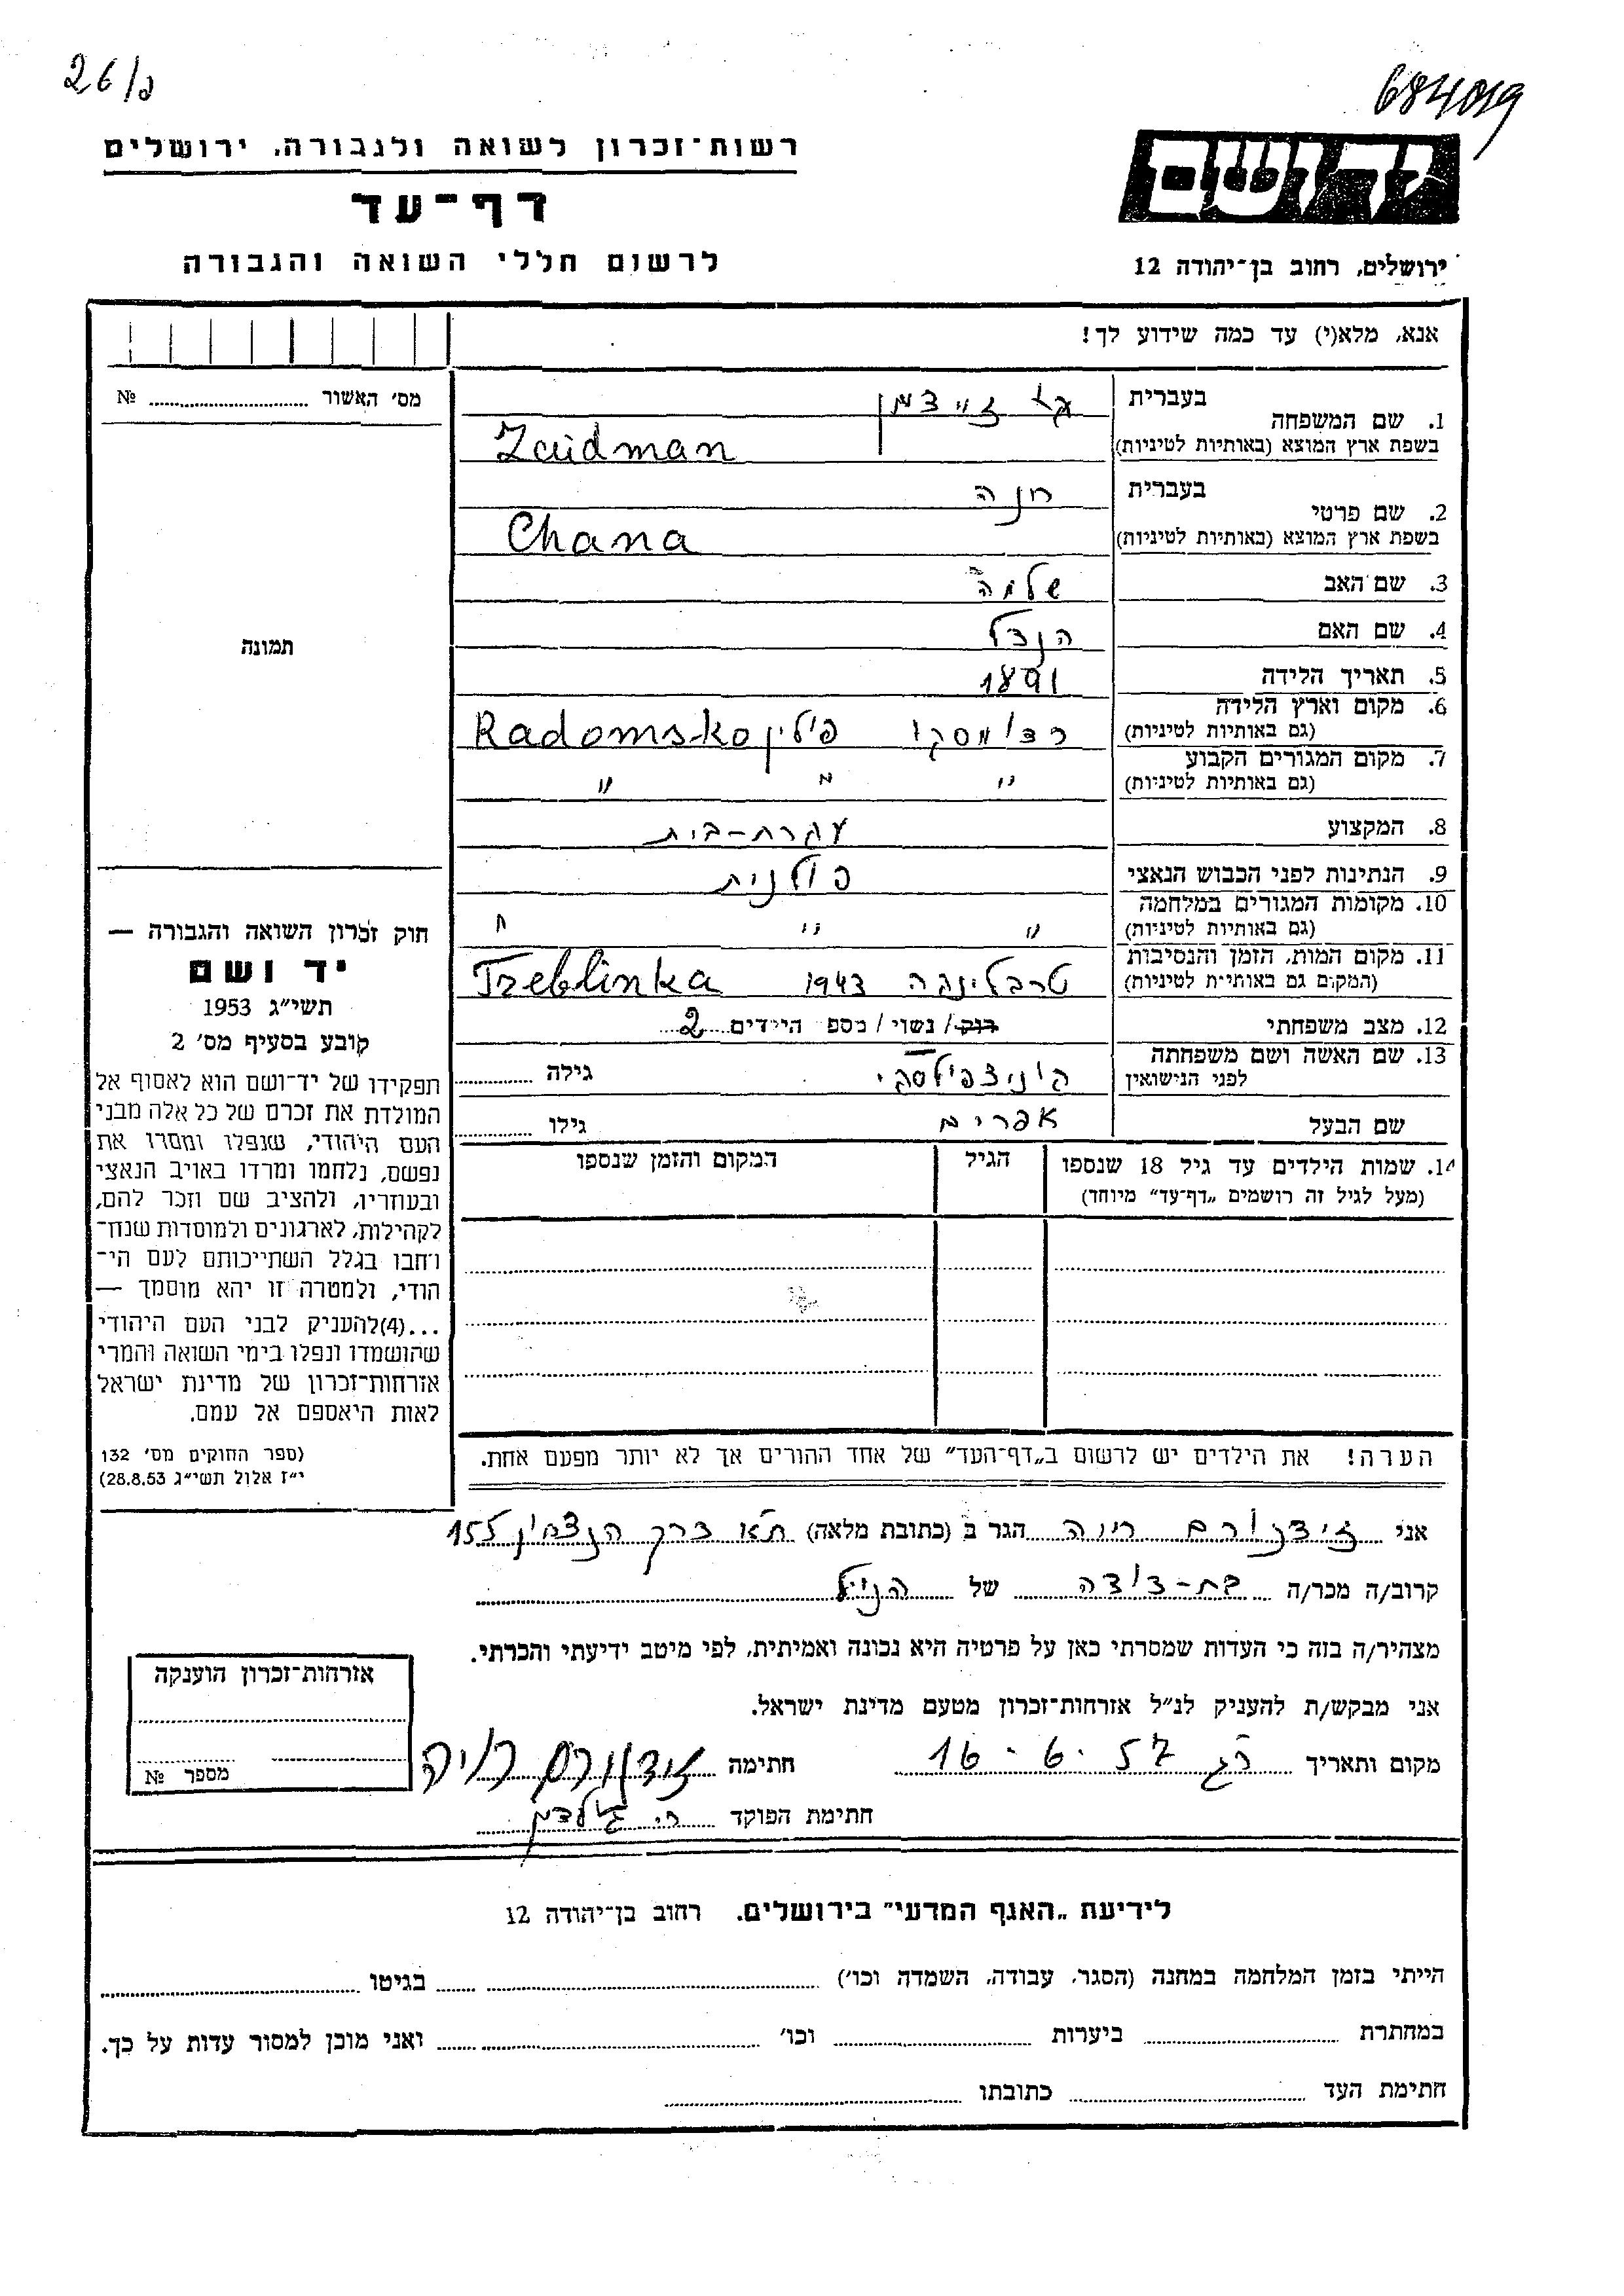 26/נ
684019
רשות־זכרון לשואה ולגבורה, ירושלים
דף־עד
לרשום חללי השואה והגבורה
יד ושם
ירושלים, רחוב בן־יהודה 12
אנא, מלא(י) עד כמה שידוע לך!
מס׳ האשור № ........
1. שם המשפחה
בעברית זיידמן
בשפת ארץ המוצא (באותיות לטיניות) Zaidman
2. שם פרטי
בעברית חנה
בשפת ארץ המוצא (באותיות לטיניות) Chana
3. שם האב שלמה
4. שם האם הנדל
5. תאריך הלידה 1891
6. מקום וארץ הלידה
(גם באותיות לטיניות) רדומסקו פולין Radomsko
7. מקום המגורים הקבוע
(גם באותיות לטיניות) " " "
8. המקצוע עקרת-בית
9. הנתינות לפני הכבוש הנאצי פולנית
10. מקומות המגורים במלחמה
(גם באותיות לטיניות) " " "
11. מקום המות, הזמן והנסיבות
(המקום גם באותיות לטיניות) טרבלינקה 1943 Treblinka
12. מצב משפחתי רוק/ נשוי/ מספ הילדים 2
13. שם האשה ושם משפחתה
לפני הנישואין גילה
שם הבעל אפרים גילו
14. שמות הילדים עד גיל 18 שנספו
(מעל לגיל זה רושמים „דף־עד״ מיוחד)
הגיל
המקום והזמן שנספו
תמונה
חוק זכרון השואה והגבורה —
יד ושם
תשי״ג 1953
קובע בסעיף מס׳ 2
תפקידו של יד־ושם הוא לאסוף אל
המולדת את זכרם של כל אלה מבני
העם היהודי, שנפלו ומסרו את
נפשם, נלחמו ומרדו באויב הנאצי
ובעוזריו, ולהציב שם וזכר להם,
לקהילות, לארגונים ולמוסדות שנח־
רחבו בגלל השתייכותם לעם הי־
הודי, ולמטרה זו יהא מוסמך —
...(4)להעניק לבני העם היהודי
שהושמדו ונפלו בימי השואה והמרי
אזרחות־זכרון של מדינת ישראל
לאות היאספם אל עמם.
(ספר החוקים מס׳ 132
י״ז אלול תשי״ג 28.8.53)
הערה! את הילדים יש לרשום ב„דף־העד״ של אחד ההורים אך לא יותר מפעם אחת.
אני הגר ב (כתובת מלאה) ת"א דרך הנצחון 155
קרוב/ה מכר/ה בת-דודה של הנ"ל
מצהיר/ה בזה כי העדות שמסרתי כאן על פרטיה היא נכונה ואמיתית, לפי מיטב ידיעתי והכרתי.
אני מבקש/ת להעניק לנ״ל אזרחות־זכרון מטעם מדינת ישראל.
מקום ותאריך רג 16.6.57 חתימה
חתימת הפוקד
אזרחות־זכרון הוענקה
מספר №
לידיעת „האגף המדעי״ בירושלים. רחוב בן־יהודה 12
הייתי בזמן המלחמה במחנה (הסגר, עבודה, השמדה וכו׳) ........ בגיטו ........
במחתרת ........ ביערות ........ וכו׳ ........ ואני מוכן למסור עדות על כך.
חתימת העד ........ כתובתו ........